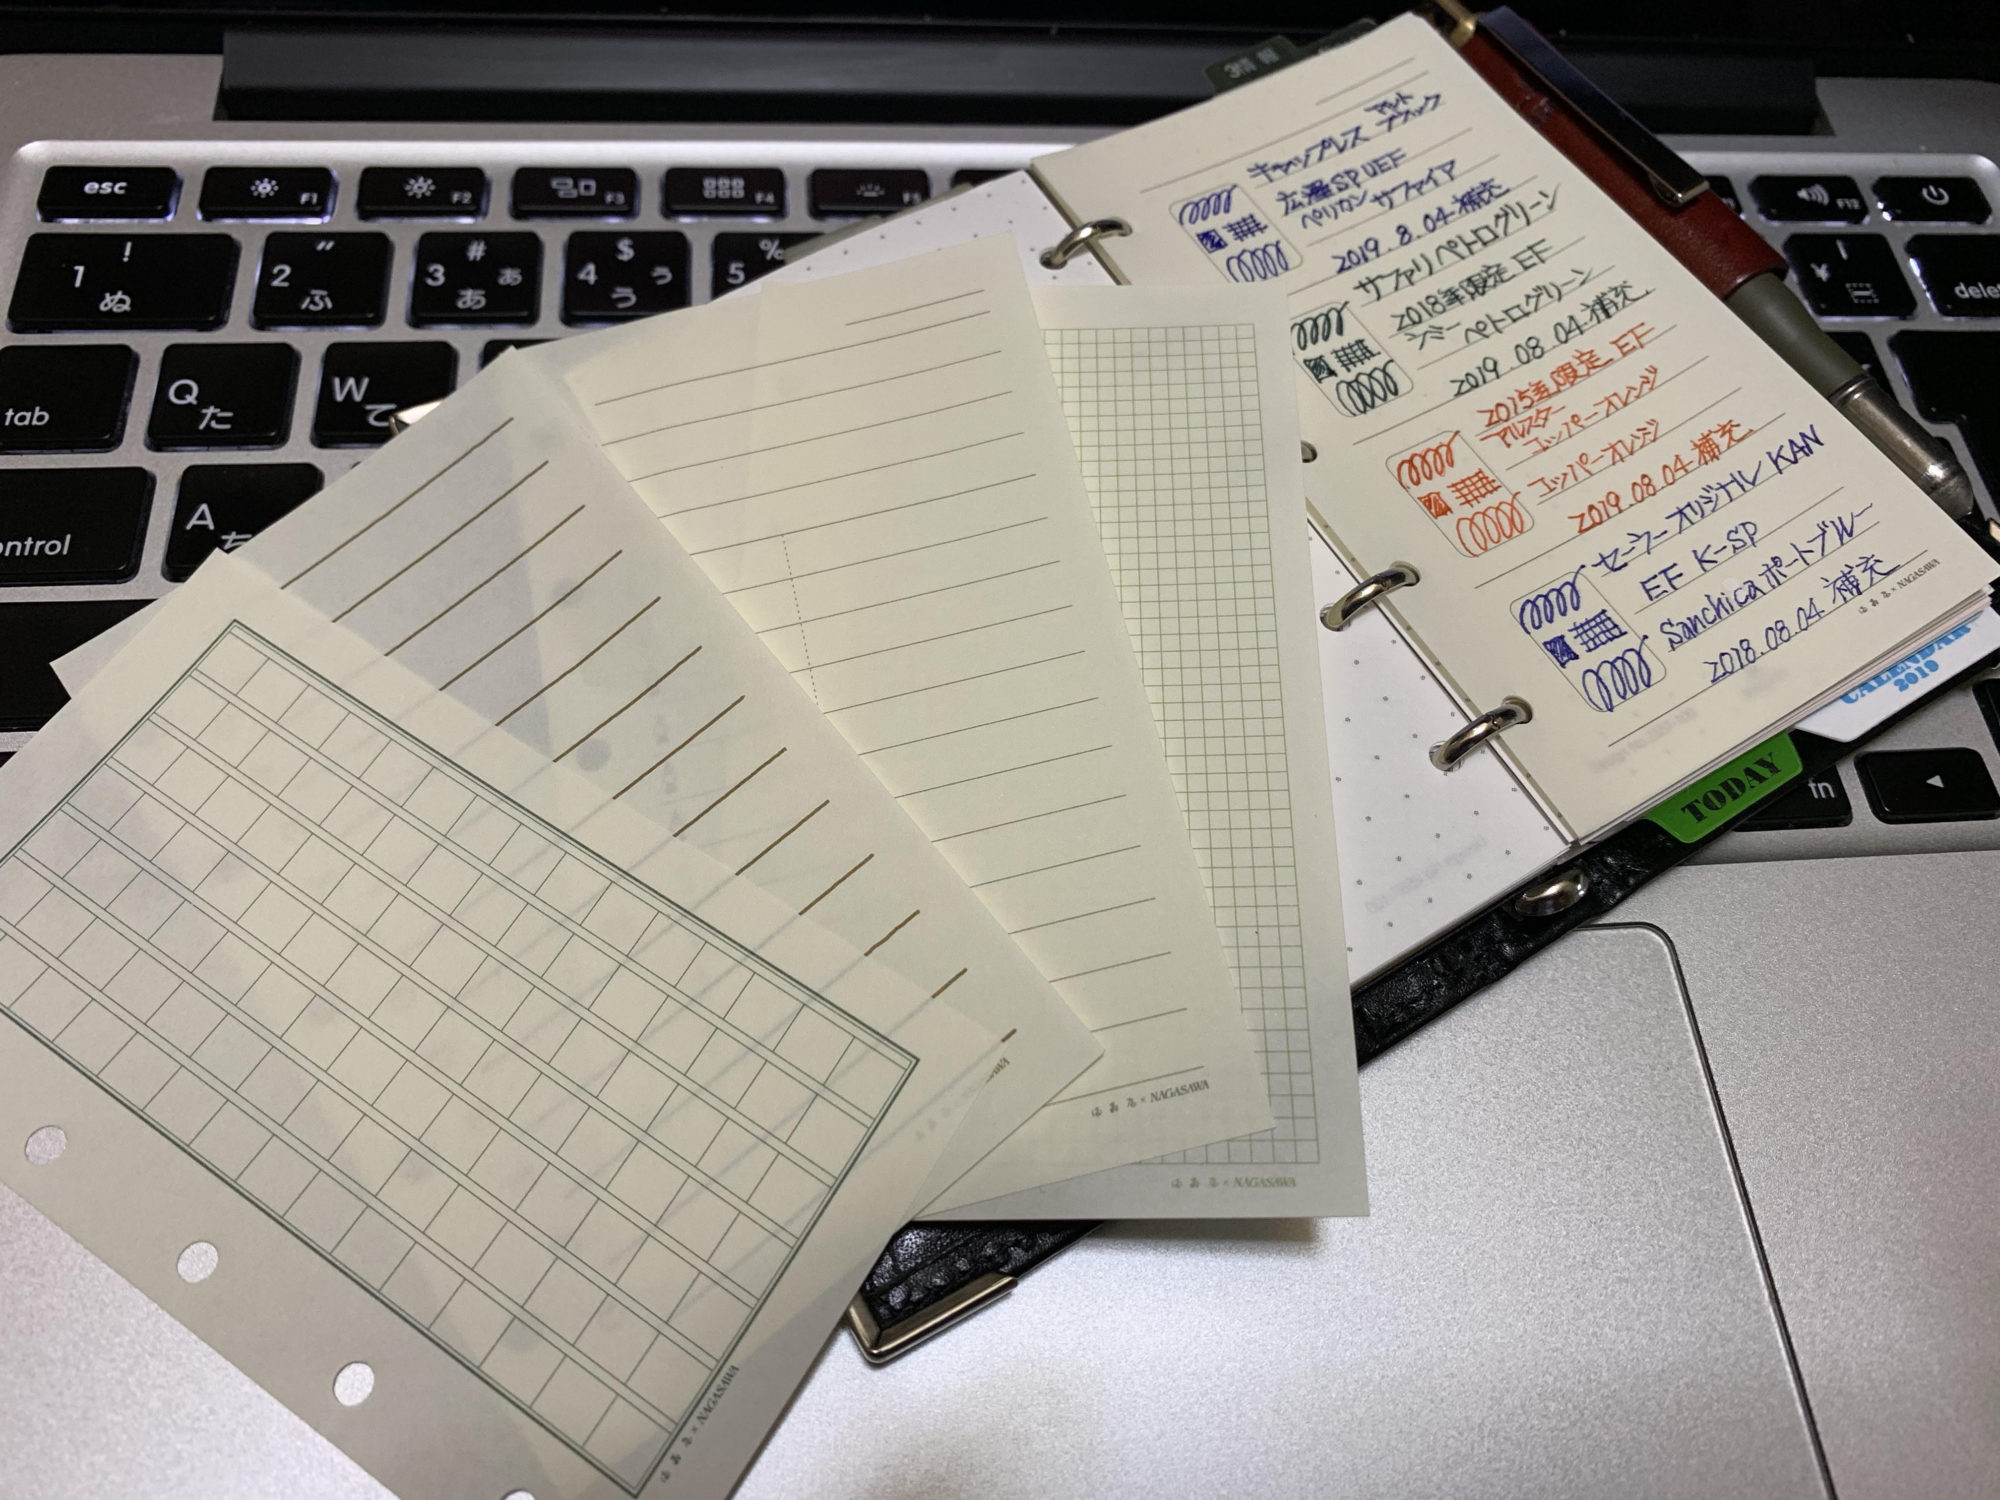 esc
F1
F2
F3
F4
F5
F12
!
1
ぬ
"
2
ふ
#
3 ぁ
あ
$
4 ぅ
う
%
5
¥
delet
tab
Q
た
W
て
ontrol
A
ち
fn
キャップレス マット
ブラック
SP UEF
ペリカン サファイア
2019.8.04 補充
サファリ ペトログリーン
2018年限定 EF
ラミー ペトログリーン
2019.08.04 補充
2015年限定 EF
アルスター
コッパーオレンジ
コッパーオレンジ
2019.08.04 補充
セーラーオリジナル KAN
EF K-SP
Sanchica ポートブルー
2018.08.04 補充
× NAGASAWA
CALENDAR
2019
TODAY
× NAGASAWA
× NAGASAWA
× NAGASAWA